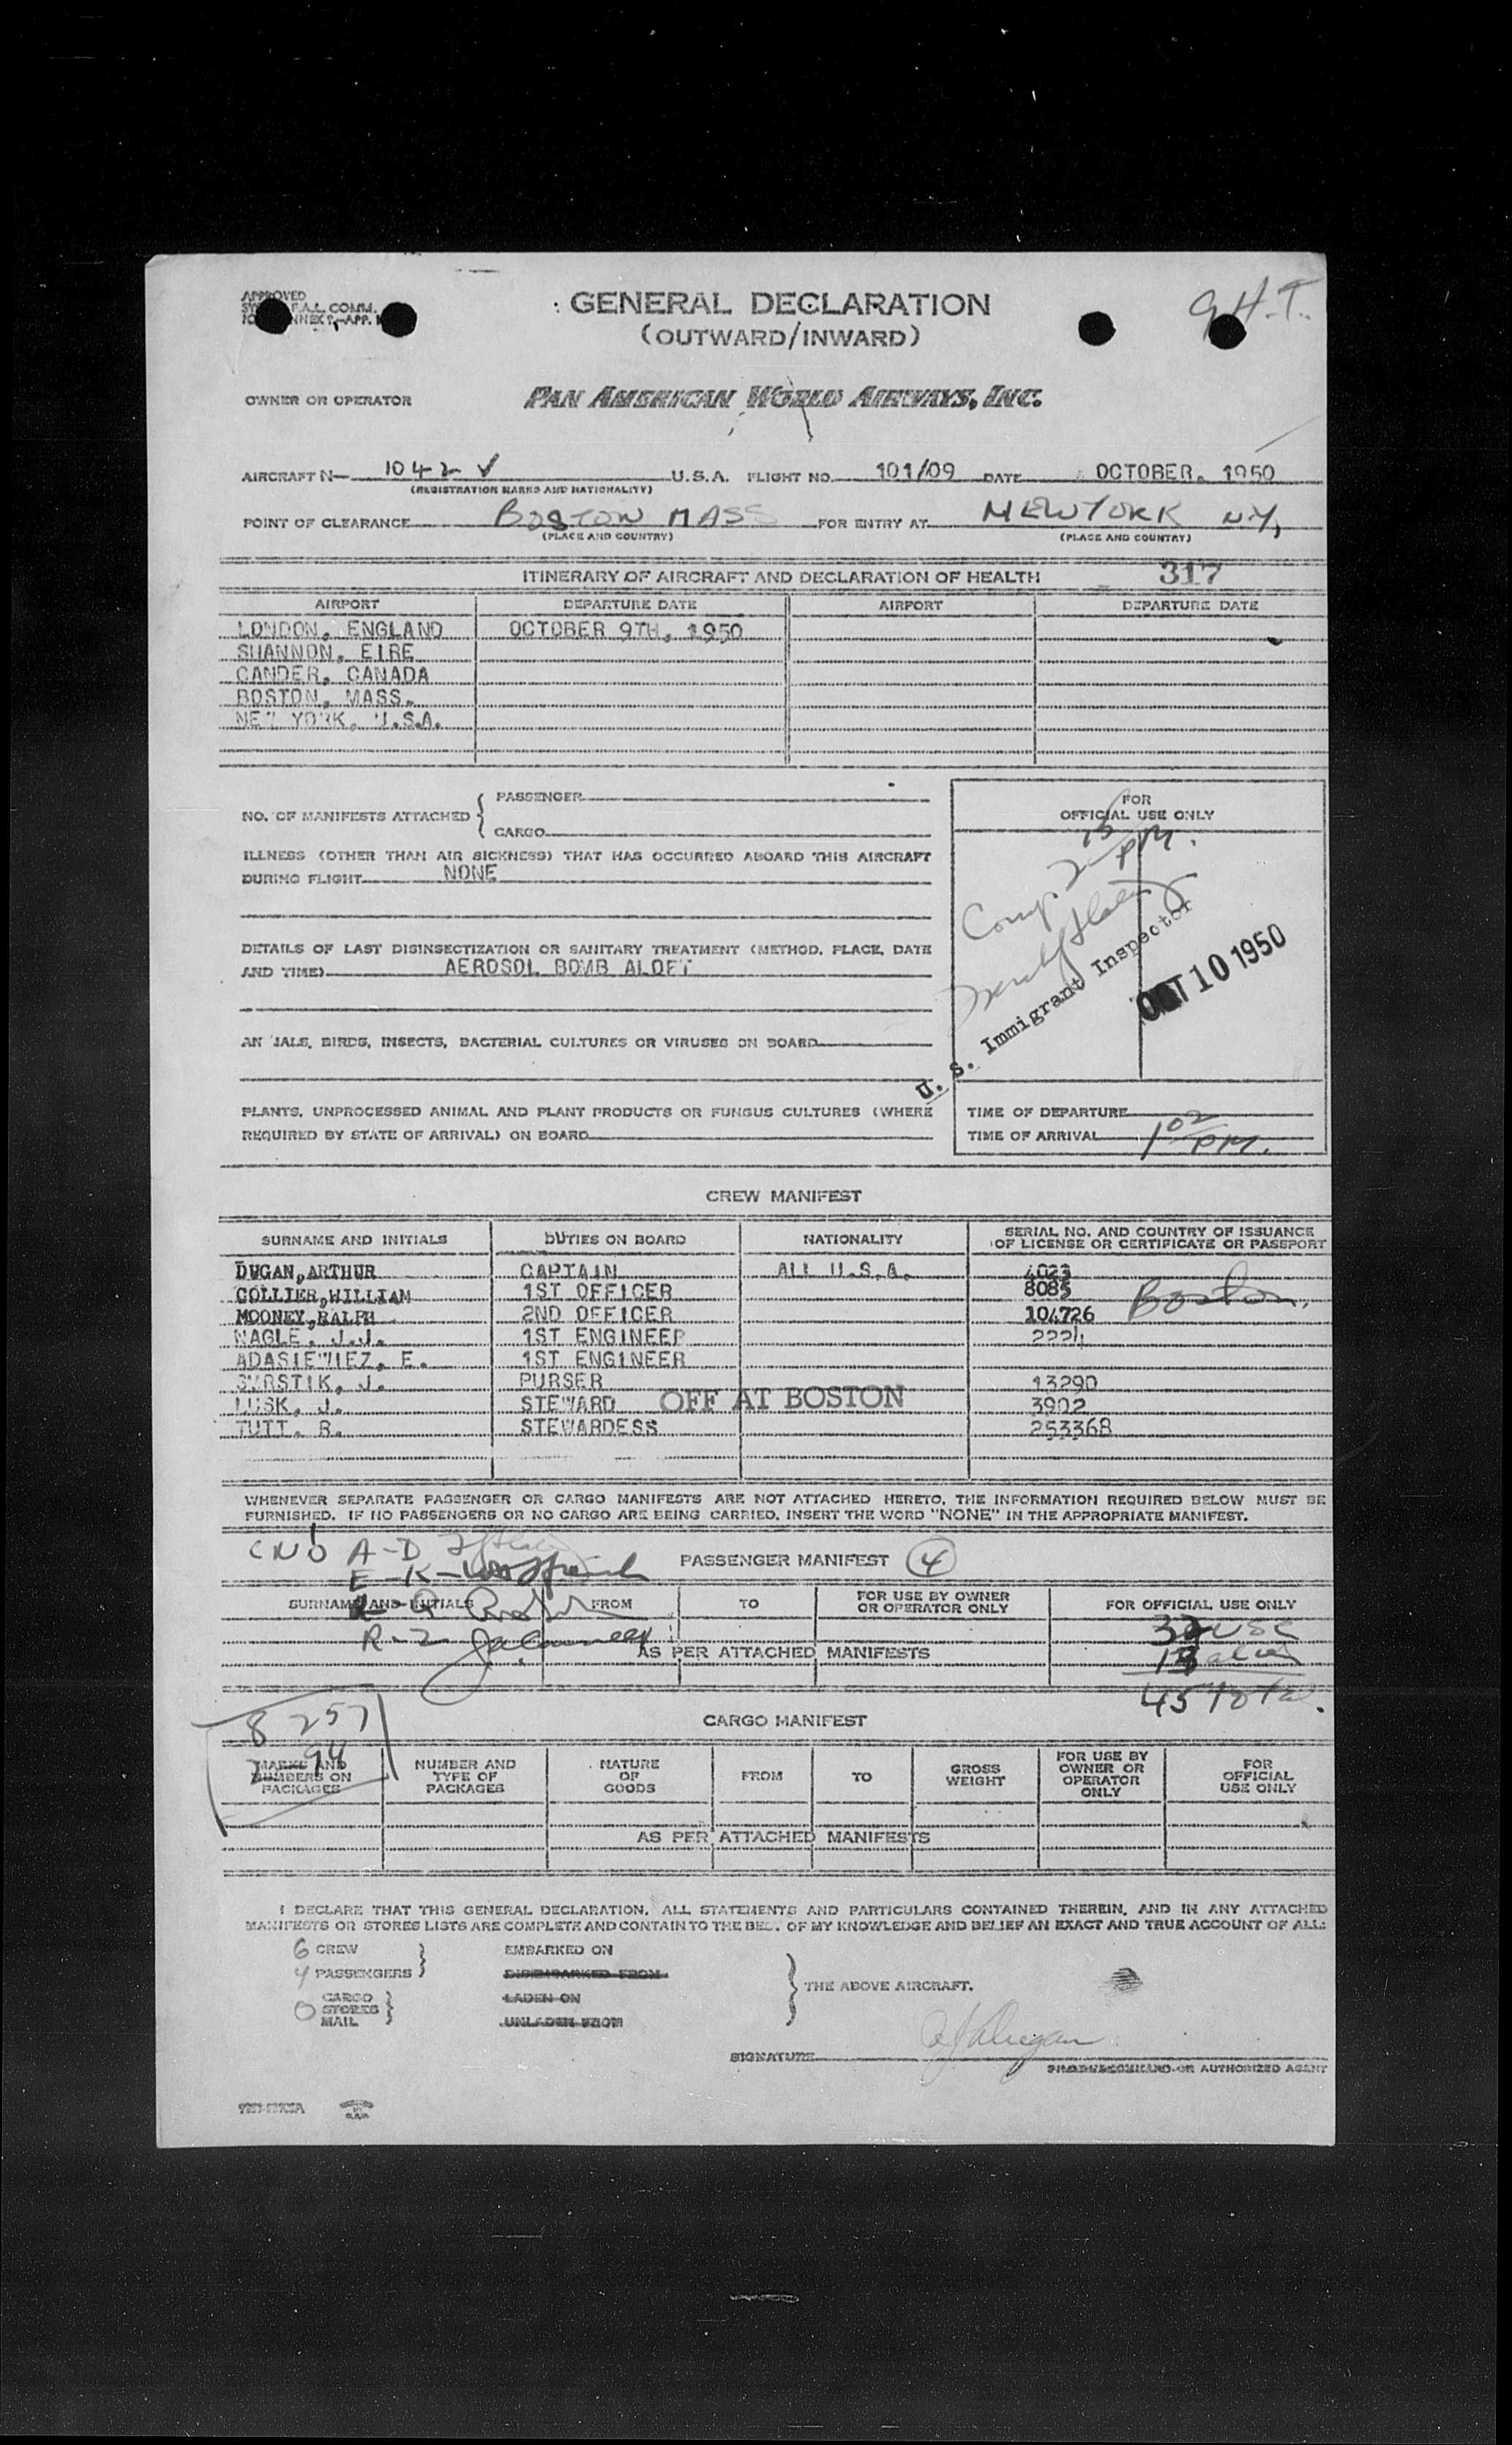 APPROVED
F.A.L. COMM.
GENERAL DECLARATION
G.H.T.
(OUTWARD/INWARD)
OWNER OR OPERATOR PAN AMERICAN WORLD AIRWAYS, INC.
AIRCRAFT N— 1042 V U.S.A. FLIGHT NO. 101/09 DATE OCTOBER. 1950
(REGISTRATION MARKS AND NATIONALITY)
POINT OF CLEARANCE BOSTON MASS FOR ENTRY AT NEW YORK N.Y,
(PLACE AND COUNTRY) (PLACE AND COUNTRY)
ITINERARY OF AIRCRAFT AND DECLARATION OF HEALTH 317
AIRPORT DEPARTURE DATE AIRPORT DEPARTURE DATE
LONDON, ENGLAND OCTOBER 9TH, 1950
SHANNON, EIRE
GANDER, CANADA
BOSTON, MASS.
NEW YORK, U.S.A.
NO. OF MANIFESTS ATTACHED { PASSENGER
CARGO
FOR
OFFICIAL USE ONLY
ILLNESS (OTHER THAN AIR SICKNESS) THAT HAS OCCURRED ABOARD THIS AIRCRAFT
DURING FLIGHT NONE
DETAILS OF LAST DISINSECTIZATION OR SANITARY TREATMENT (METHOD, PLACE, DATE
AND TIME) AEROSOL BOMB ALOFT
ANIMALS, BIRDS, INSECTS, BACTERIAL CULTURES OR VIRUSES ON BOARD
PLANTS, UNPROCESSED ANIMAL AND PLANT PRODUCTS OR FUNGUS CULTURES (WHERE
REQUIRED BY STATE OF ARRIVAL) ON BOARD
Comp. 2 15 PM.
U. S. Immigrant Inspector
OCT 10 1950
TIME OF DEPARTURE
TIME OF ARRIVAL 1 02 PM.
CREW MANIFEST
SURNAME AND INITIALS DUTIES ON BOARD NATIONALITY SERIAL NO. AND COUNTRY OF ISSUANCE
OF LICENSE OR CERTIFICATE OR PASSPORT
DUGAN, ARTHUR CAPTAIN ALL U.S.A. 4023
COLLIER, WILLIAM 1ST OFFICER 8085 Boston.
MOONEY, RALPH 2ND OFFICER 104726
NAGLE, J.J. 1ST ENGINEER 2224
ADASIEWIEZ, E. 1ST ENGINEER
J. PURSER 13290
LUSK, J. STEWARD OFF AT BOSTON 3902
TUTT, R. STEWARDESS 253368
WHENEVER SEPARATE PASSENGER OR CARGO MANIFESTS ARE NOT ATTACHED HERETO, THE INFORMATION REQUIRED BELOW MUST BE
FURNISHED. IF NO PASSENGERS OR NO CARGO ARE BEING CARRIED, INSERT THE WORD "NONE" IN THE APPROPRIATE MANIFEST.
A-D
PASSENGER MANIFEST 4
E-K-
SURNAME AND INITIALS FROM TO FOR USE BY OWNER
OR OPERATOR ONLY FOR OFFICIAL USE ONLY
L-Q
R-Z
32 USC
AS PER ATTACHED MANIFESTS 13 alien
45 Total.
8 257
7 94
CARGO MANIFEST
MARKS AND
NUMBERS ON
PACKAGES NUMBER AND
TYPE OF
PACKAGES NATURE
OF
GOODS FROM TO GROSS
WEIGHT FOR USE BY
OWNER OR
OPERATOR
ONLY FOR
OFFICIAL
USE ONLY
AS PER ATTACHED MANIFESTS
I DECLARE THAT THIS GENERAL DECLARATION, ALL STATEMENTS AND PARTICULARS CONTAINED THEREIN, AND IN ANY ATTACHED
MANIFESTS OR STORES LISTS ARE COMPLETE AND CONTAIN TO THE BEST OF MY KNOWLEDGE AND BELIEF AN EXACT AND TRUE ACCOUNT OF ALL:
6 CREW EMBARKED ON
4 PASSENGERS DISEMBARKED FROM
THE ABOVE AIRCRAFT.
CARGO LADEN ON
0 STORES
MAIL UNLADEN FROM
SIGNATURE A J Dugan
OR AUTHORIZED AGENT